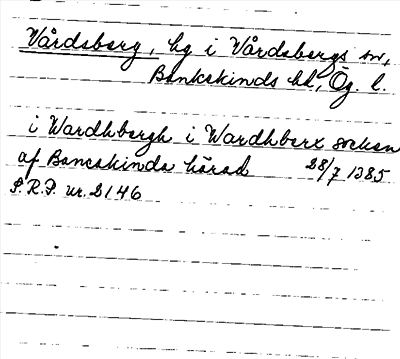 Vårdsberg, by i Vårdsbergs sn,
Bankekinds hd, Ög. l.
i Wardhbergh i Wardhberx sochen
af Bancakinda härad 28/7 1385
S.R.P. nr. 2146